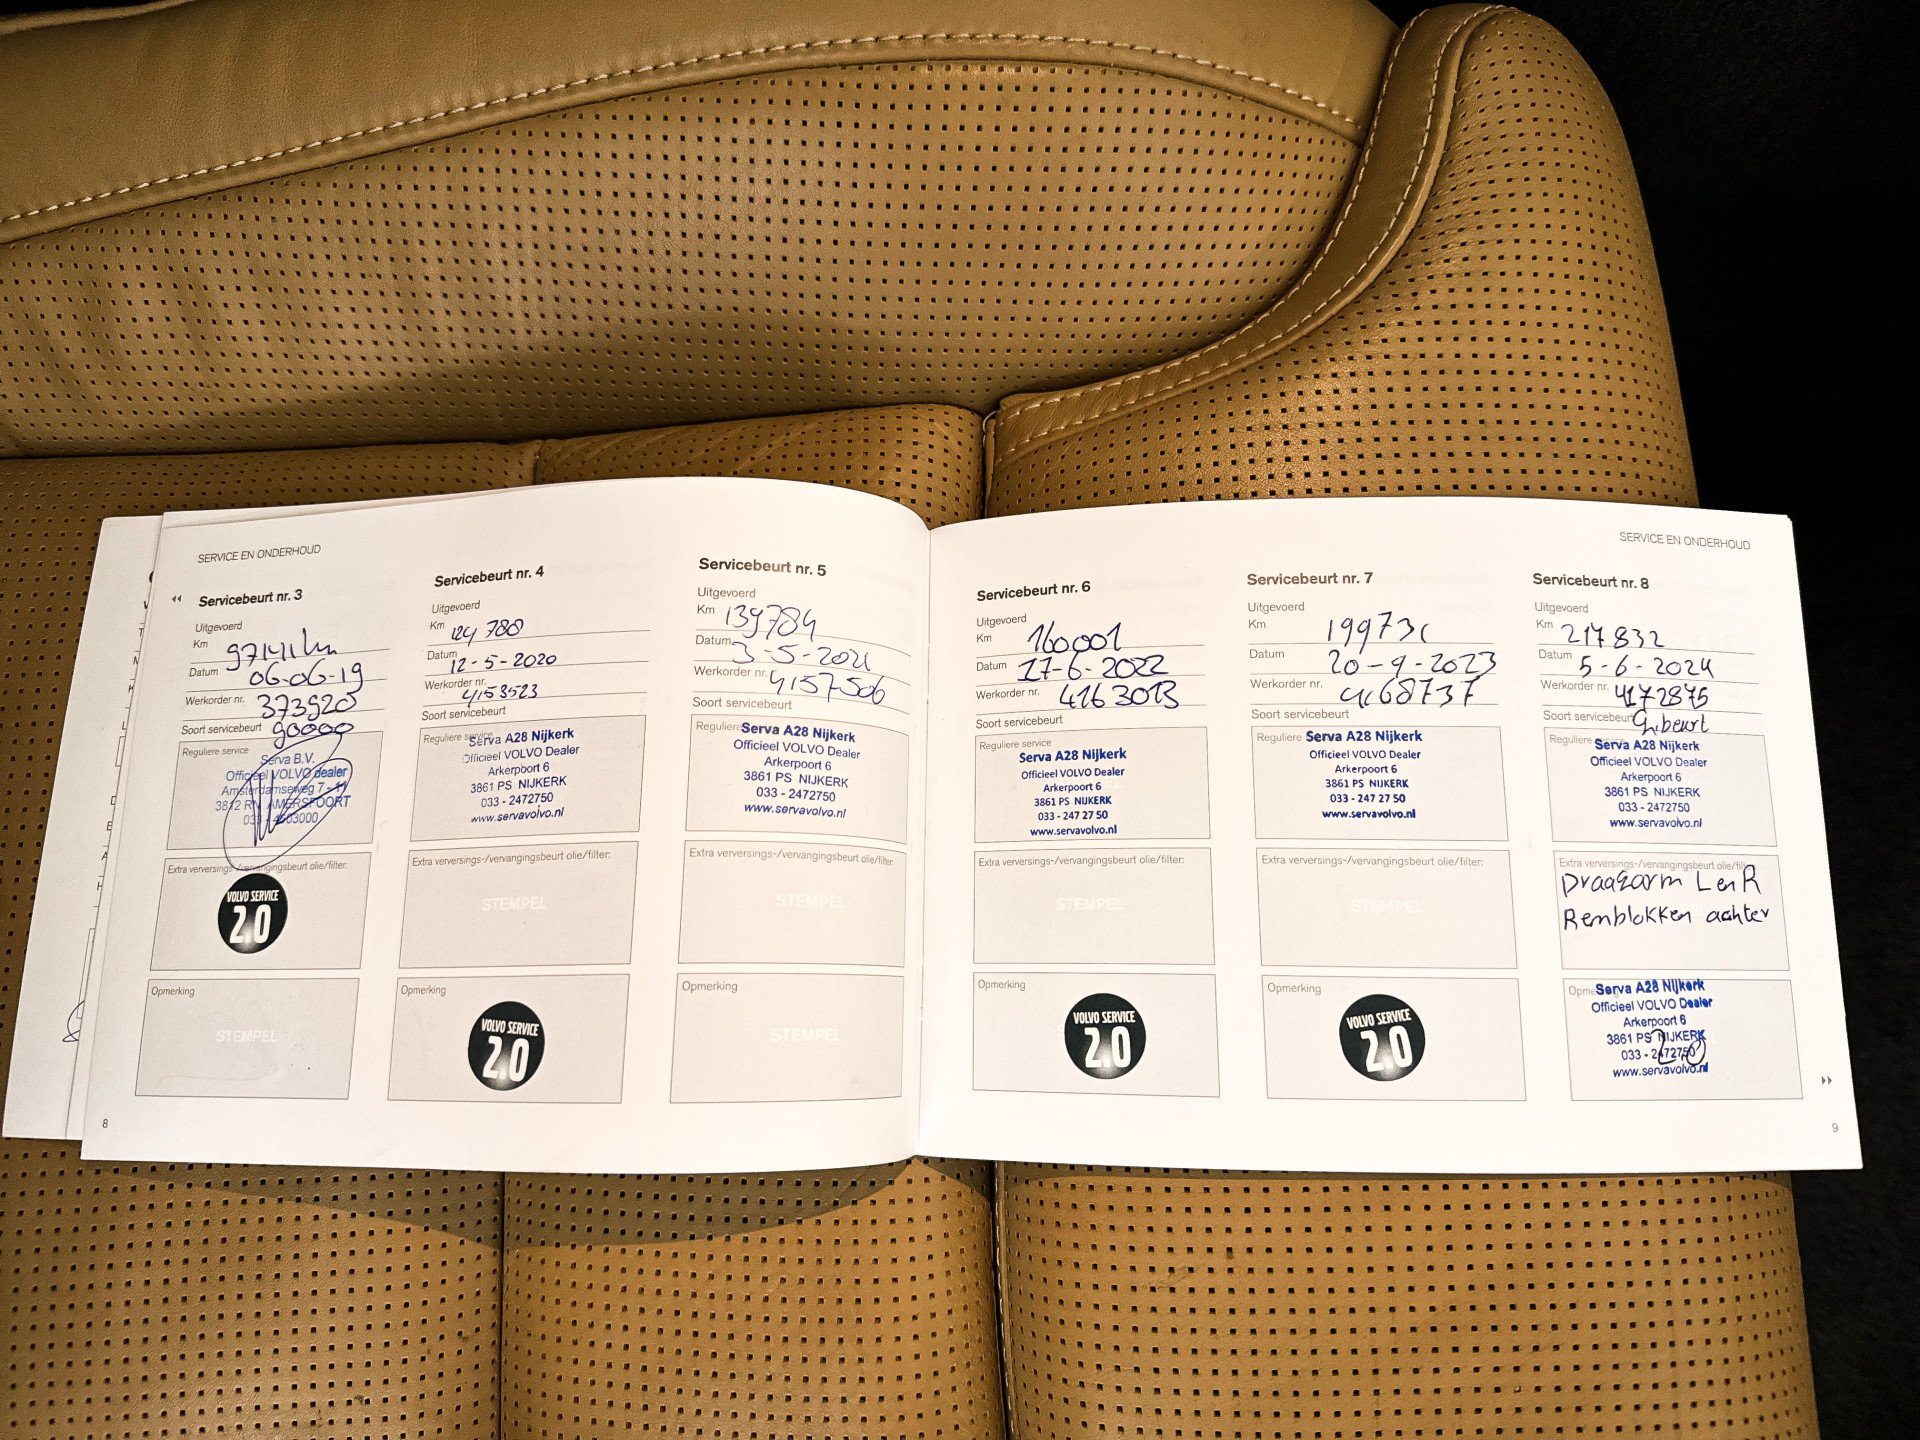 SERVICE EN ONDERHOUD
Servicebeurt nr. 3
Uitgevoerd
Km 97141 km
Datum 06-06-19
Werkorder nr. 373920
Soort servicebeurt 90000
Reguliere service
Serva B.V.
Officieel VOLVO dealer
Amsterdamseweg 7 - 11
3812 RN AMERSFOORT
Extra verversings-/vervangingsbeurt olie/filter:
VOLVO SERVICE
2.0
Opmerking
STEMPEL
8
Servicebeurt nr. 4
Uitgevoerd
Km 124 788
Datum 12-5-2020
Werkorder nr. 4153523
Soort servicebeurt
Reguliere service
Serva A28 Nijkerk
Officieel VOLVO Dealer
Arkerpoort 6
3861 PS NIJKERK
033 - 2472750
www.servavolvo.nl
Extra verversings-/vervangingsbeurt olie/filter:
STEMPEL
Opmerking
VOLVO SERVICE
2.0
Servicebeurt nr. 5
Uitgevoerd
Km 139784
Datum 3-5-2021
Werkorder nr. 4157506
Soort servicebeurt
Reguliere
Serva A28 Nijkerk
Officieel VOLVO Dealer
Arkerpoort 6
3861 PS NIJKERK
033 - 2472750
www.servavolvo.nl
Extra verversings-/vervangingsbeurt olie/filter:
STEMPEL
Opmerking
STEMPEL
SERVICE EN ONDERHOUD
Servicebeurt nr. 6
Uitgevoerd
Km 160001
Datum 17-6-2022
Werkorder nr. 4163013
Soort servicebeurt
Reguliere service
Serva A28 Nijkerk
Officieel VOLVO Dealer
Arkerpoort 6
3861 PS NIJKERK
033 - 247 27 50
www.servavolvo.nl
Extra verversings-/vervangingsbeurt olie/filter:
STEMPEL
Opmerking
VOLVO SERVICE
2.0
Servicebeurt nr. 7
Uitgevoerd
Km 199731
Datum 20-9-2023
Werkorder nr. 4168737
Soort servicebeurt
Reguliere
Serva A28 Nijkerk
Officieel VOLVO Dealer
Arkerpoort 6
3861 PS NIJKERK
033 - 247 27 50
www.servavolvo.nl
Extra verversings-/vervangingsbeurt olie/filter:
STEMPEL
Opmerking
VOLVO SERVICE
2.0
Servicebeurt nr. 8
Uitgevoerd
Km 217832
Datum 5-6-2024
Werkorder nr. 4172875
Soort servicebeurt
Reguliere
Serva A28 Nijkerk
Officieel VOLVO Dealer
Arkerpoort 6
3861 PS NIJKERK
033 - 2472750
www.servavolvo.nl
Extra verversings-/vervangingsbeurt olie/filter
Draagarm L en R
Remblokken achter
Serva A28 Nijkerk
Officieel VOLVO Dealer
Arkerpoort 6
3861 PS NIJKERK
033 - 2472750
2.0
www.servavolvo.nl
9